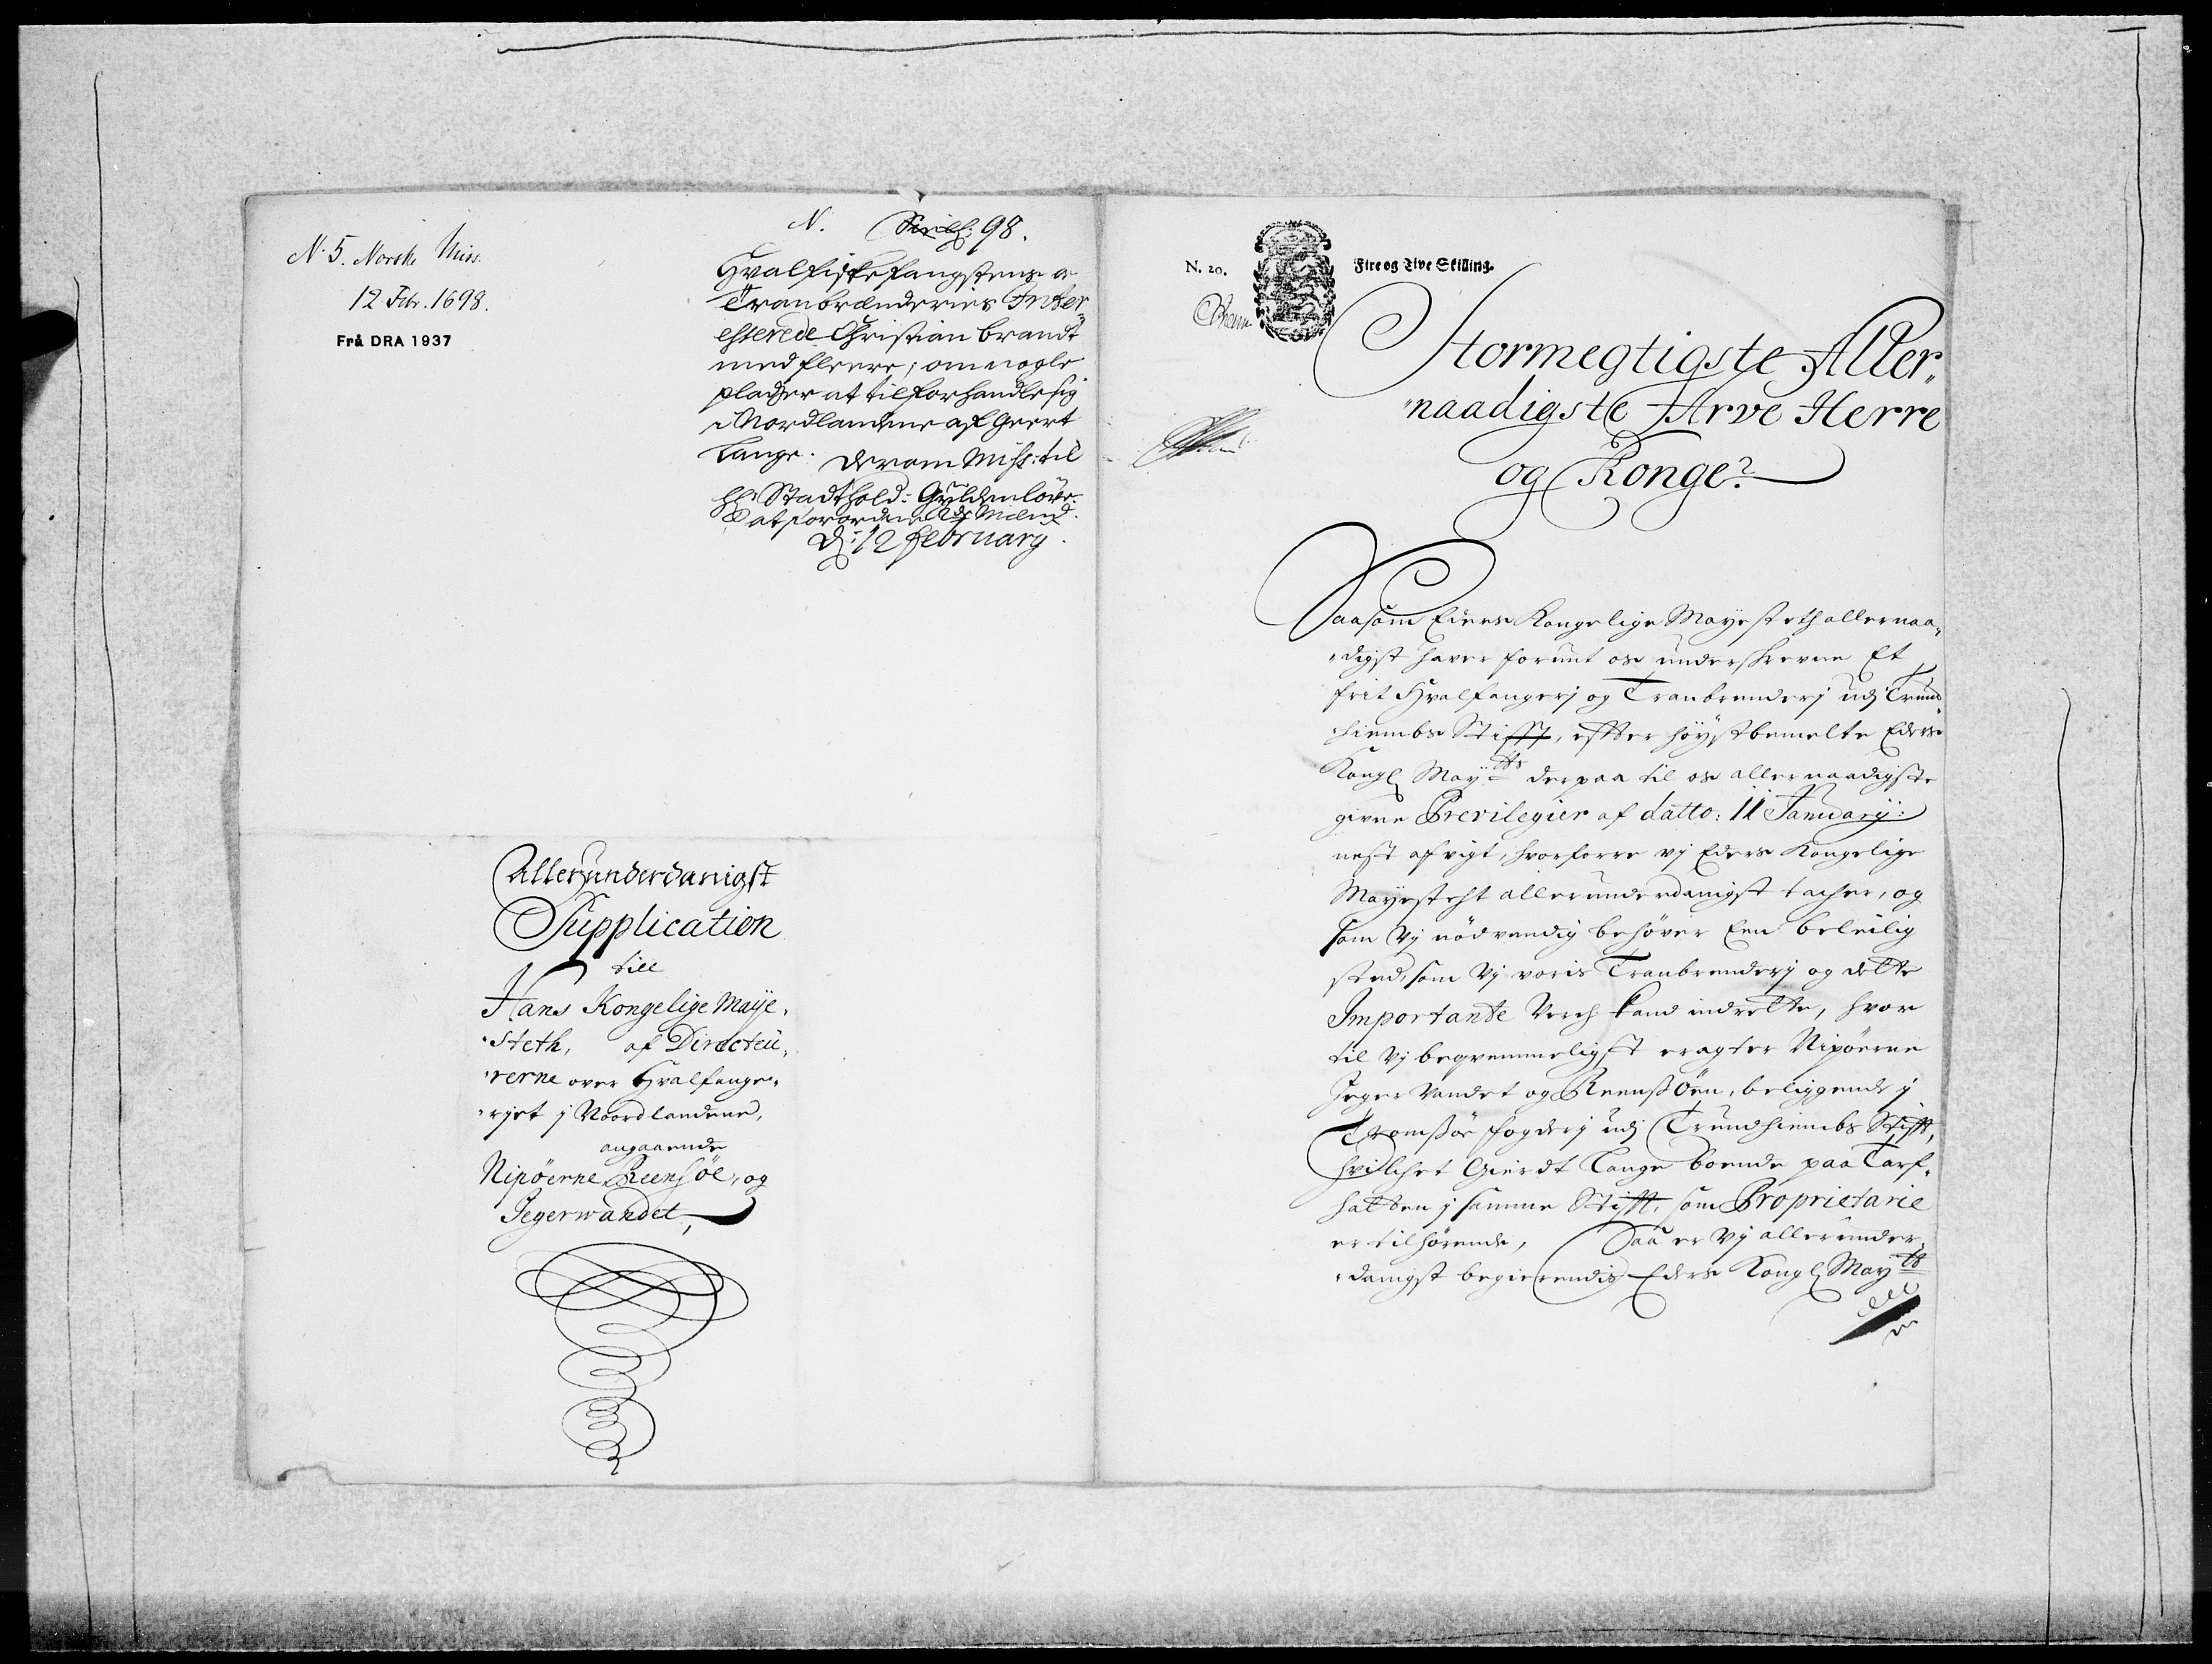 N. 5. Norske Miss.
12 Febr. 1698.
Frå DRA 1937
N. 98.
Hvalfiskefangstens og
Tranbrænderies Inter„
esserede Christian Brandt
med fleere; om nogle
pladser at tilforhandle sig
i Nordlandene af Geert
Lange. Derom Miss: til
H: Stadthold: Gyldenløve
at forordne Mænd.
D: 12 February.
Allerunderdanigst
Supplication
till
Hans Kongelige Maÿe„
„steth, af Directeu„
„rerne over Hvalfange„
„rjet j Noordlandene,
angaaende
Nipöerne, Reensöe, og
Jegerwandet,
N. 20. Fire og Tive Skilling.
Stormegtigste Aller„
„naadigste Arve Herre
og Konge?
Saasom Eders Kongelige Mayesteth allernaa„
„digst haver forunt os underskrevne Et
frit Hvalfangerj og Tranbrenderj udj Trund„
„hiembs Stifft, effter høystbemelte Eders
Kongl Mayts derpaa til os allernaadigste
givne Previlegier af datto: 11 January:
nest afvigt, hvorforre vj Eders Kongelige
Mayesteht allerunderdanigst tacher, og
som Vj nödvendig behöver Een beleilig
sted, som Vj voris Tranbrenderj og dette
Importante Verch kand indrette, hvor
til Vj beqvemmeligst eragter Nipöerne
Jeger Vandet og Reenß Öen, beliggende j
Tromßöe fogderj udj Trundhiembs Stifft,
hvilchet Gierdt Lange boende paa Torf„
hatten j samme Stifft, som Proprietarie
er tilhörende, Saa er Vj allerunder„
„danigst begierendis Eders Kongl Mayts